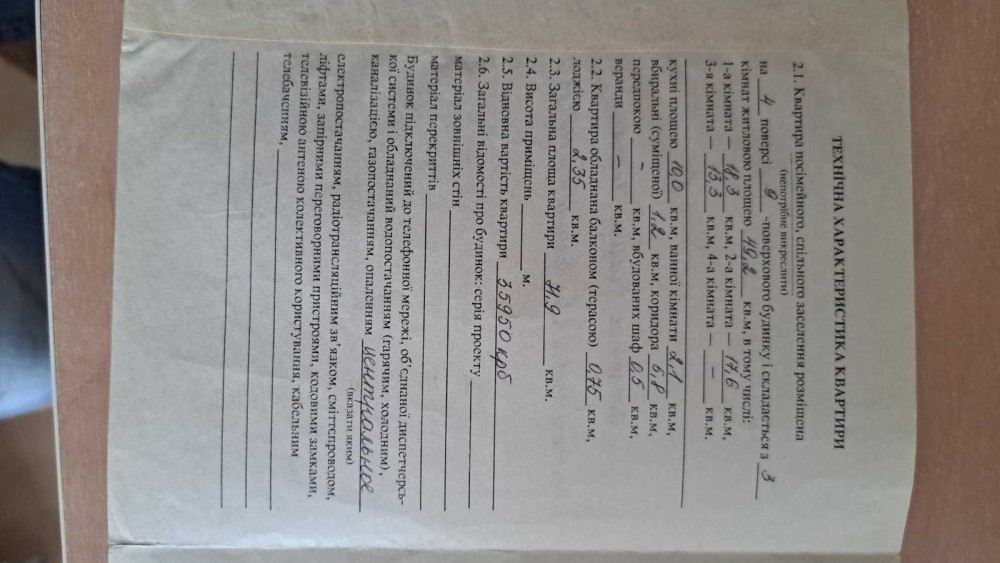 ТЕХНІЧНА ХАРАКТЕРИСТИКА КВАРТИРИ
2.1. Квартира посімейного, спільного заселення розміщена
(непотрібне викреслити)
на 4 поверсі 9 -поверхового будинку і складається з 3
кімнат житловою площею 49,2 кв.м, в тому числі:
1-а кімната — 18,3 кв.м, 2-а кімната — 17,6 кв.м,
3-я кімната — 13,3 кв.м, 4-а кімната — – кв.м.
кухні площею 10,0 кв.м, ванної кімнати 2,1 кв.м,
вбиральні (суміщеної) 1,2 кв.м, коридора 5,8 кв.м,
передпокою – кв.м, вбудованих шаф 0,5 кв.м,
веранди – кв.м.
2.2. Квартира обладнана балконом (терасою) 0,75 кв.м,
лоджією 2,35 кв.м.
2.3. Загальна площа квартири 71,9 кв.м.
2.4. Висота приміщень м.
2.5. Відновна вартість квартири 35950 крб
2.6. Загальні відомості про будинок: серія проекту
матеріал зовнішніх стін
матеріал перекриттів
Будинок підключений до телефонної мережі, об'єднаної диспетчерсь-
кої системи і обладнаний водопостачанням (гарячим, холодним),
каналізацією, газопостачанням, опаленням центральное
(вказати яким)
електропостачанням, радіотрансляційним зв'язком, сміттєпроводом,
ліфтами, запірними переговорними пристроями, кодовими замками,
телевізійною антеною колективного користування, кабельним
телебаченням,